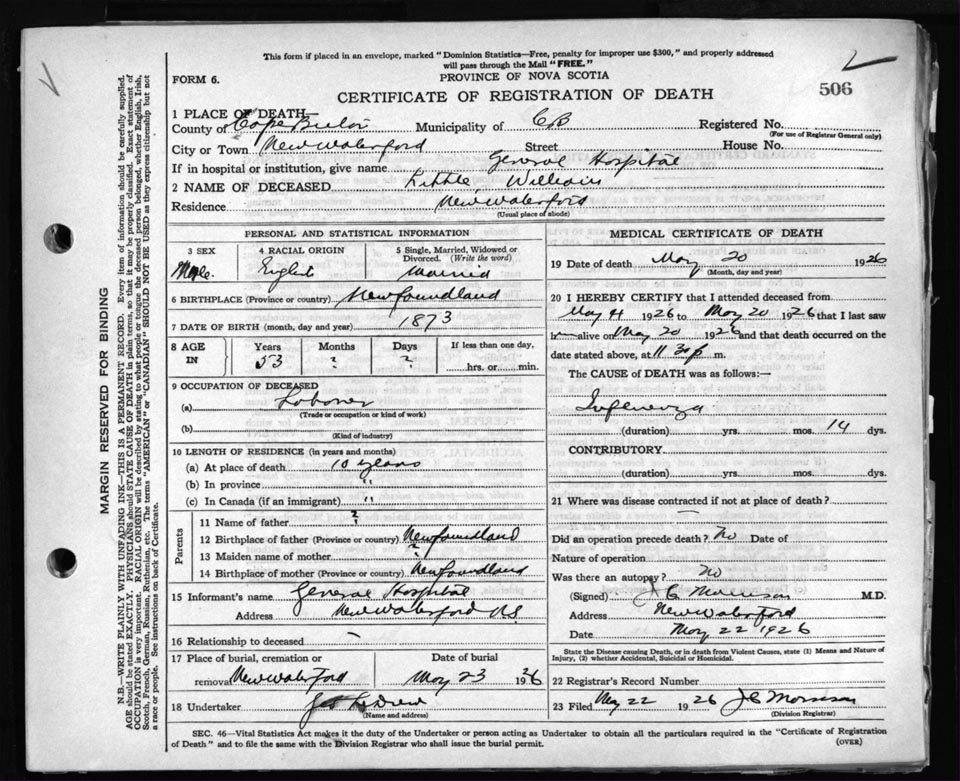 This form if placed in an envelope, marked "Dominion Statistics—Free, penalty for improper use $300," and properly addressed
will pass through the Mail "FREE."
FORM 6.
PROVINCE OF NOVA SCOTIA
506
CERTIFICATE OF REGISTRATION OF DEATH
1 PLACE OF DEATH
County of Cape Breton Municipality of CB Registered No.
(For use of Registrar General only)
City or Town New Waterford Street House No.
If in hospital or institution, give name General Hospital
2 NAME OF DECEASED Little, William
Residence New Waterford
(Usual place of abode)
PERSONAL AND STATISTICAL INFORMATION
3 SEX Male
4 RACIAL ORIGIN English
5 Single, Married, Widowed or Divorced. (Write the word) Married
6 BIRTHPLACE (Province or country) Newfoundland
7 DATE OF BIRTH (month, day and year) 1873
8 AGE IN Years 53 Months ? Days ? If less than one day, hrs. or min.
9 OCCUPATION OF DECEASED
(a) Laborer
(Trade or occupation or kind of work)
(b)
(Kind of industry)
10 LENGTH OF RESIDENCE (in years and months)
(a) At place of death 10 years
(b) In province "
(c) In Canada (if an immigrant) "
Parents
11 Name of father ?
12 Birthplace of father (Province or country) Newfoundland
13 Maiden name of mother ?
14 Birthplace of mother (Province or country) Newfoundland
15 Informant's name General Hospital
Address New Waterford N.S.
16 Relationship to deceased —
17 Place of burial, cremation or removal New Waterford
Date of burial May 23 1926
18 Undertaker
(Name and address)
MEDICAL CERTIFICATE OF DEATH
19 Date of death May 20 1926
(Month, day and year)
20 I HEREBY CERTIFY that I attended deceased from
May 4 1926 to May 20 1926 that I last saw
h alive on May 20 1926 and that death occurred on the
date stated above, at 11 30 p m.
The CAUSE of DEATH was as follows:—
Influenza
(duration) yrs. mos. 14 dys.
CONTRIBUTORY
(duration) yrs. mos. dys.
21 Where was disease contracted if not at place of death?
—
Did an operation precede death? No Date of
Nature of operation
Was there an autopsy? no
(Signed) J C Morrison M.D.
Address New Waterford
Date May 22 1926
State the Disease causing Death, or in death from Violent Causes, state (1) Means and Nature of
Injury, (2) whether Accidental, Suicidal or Homicidal.
22 Registrar's Record Number
23 Filed May 22 1926 J C Morrison
(Division Registrar)
SEC. 46—Vital Statistics Act makes it the duty of the Undertaker or person acting as Undertaker to obtain all the particulars required in the "Certificate of Registration
of Death" and to file the same with the Division Registrar who shall issue the burial permit.
(OVER)
MARGIN RESERVED FOR BINDING
N.B.—WRITE PLAINLY WITH UNFADING INK—THIS IS A PERMANENT RECORD. Every item of information should be carefully supplied.
AGE should be stated EXACTLY. PHYSICIANS should STATE CAUSE OF DEATH in plain terms, so that it may be properly classified. Exact statement of
OCCUPATION is very important. RACIAL ORIGIN will be described by stating to what people or tongue the deceased person belonged, whether English, Irish,
Scotch, French, German, Russian, Ruthenian, etc. The terms "AMERICAN" or "CANADIAN" SHOULD NOT BE USED as they express citizenship but not
a race or people. See instructions on back of Certificate.